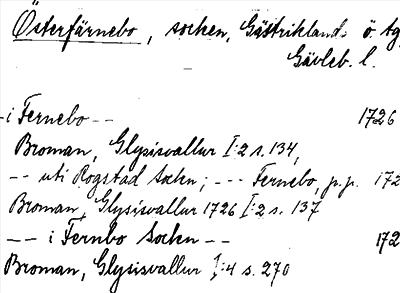 Österfärnebo, socken, Gästrikland. ö. tg,
Gävleb. l.
- i Fernebo -- 1726
Broman, Glysisvallur I:2 s. 134,
-- uti Rogstad Sochn; --- Fernebo, p.p. 172
Broman, Glysisvallur 1726 I:2 s. 137
-- i Fernbo Sochn -- 172
Broman, Glysisvallur I:4 s. 270